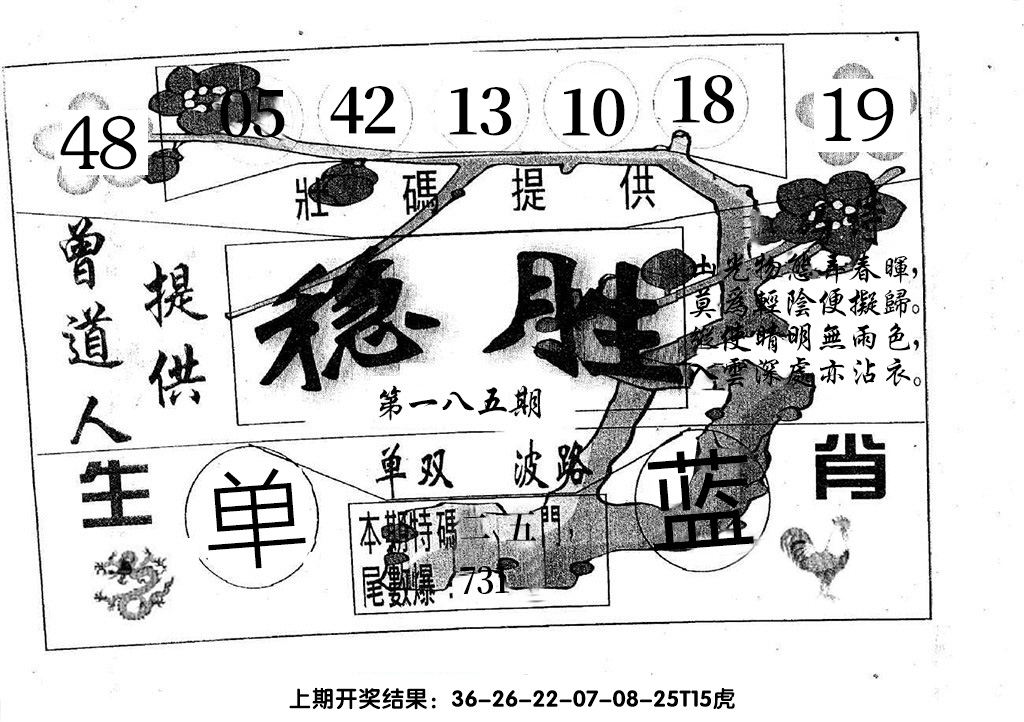 48 05 42 13 10 18 19
壯碼提供
曾道人
提供
稳胜
第一八五期
山光物態弄春暉，
莫為輕陰便擬歸。
縱使晴明無雨色，
入雲深處亦沾衣。
生肖
单双 波路
单
蓝
本期特碼二、五門，
尾數爆：731
上期开奖结果：36-26-22-07-08-25T15虎